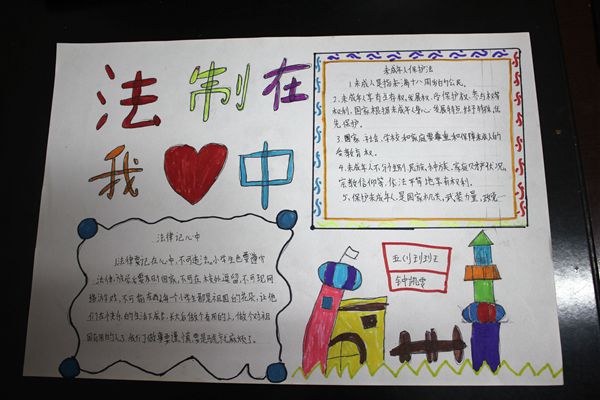 法制在
我中
未成年人保护法
1.未成人是指未满十八周岁的公民。
2.未成年享有生存权、发展权、受保护权、参与权等
权利,国家根据未成年人身心发展特点给予特殊、优
先保护。
3.国家、社会、学校和家庭尊重和保障未成年人的
受教育权。
4.未成年人不分性别、民族、种族、家庭财产状况、
宗教信仰等,依法平等地享有权利。
5.保护未成年人,是国家机关,武装力量,政党
法律记心中
法律要记在心中,不可违法,小学生也要遵守
法律,放学
时回家,不可在校外逗留,不可玩网
络游戏,不可
每一个小学生都是祖国的花朵,让他
们在快乐的生活
长大后做个有用的人,做个对祖
国有用的人
钟凯雯